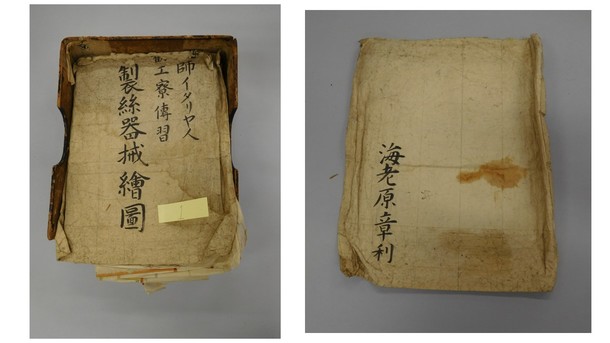 師イタリヤ人
工寮傳習
製絲器械繪圖
海老原章利